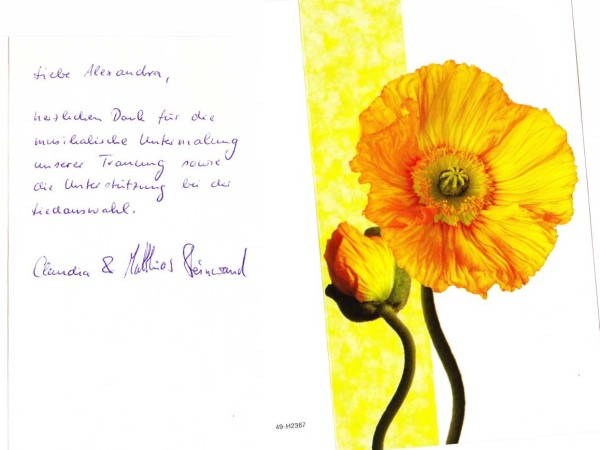 Liebe Alexandra,
herzlichen Dank für die
musikalische Untermalung
unserer Trauung sowie
die Unterstützung bei der
Liedauswahl.
Claudia & Matthias
49-H2367